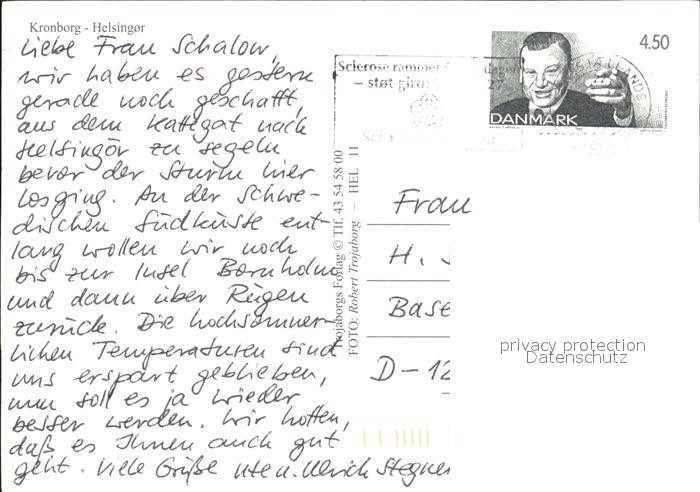 Kronborg - Helsingør
Liebe Frau Schalow,
wir haben es gestern
gerade noch geschafft,
aus dem Kattegat nach
Helsingör zu segeln
bevor der Sturm hier
losging. An der Schwe-
dischen Südküste ent-
lang wollen wir noch
bis zur Insel Bornholm
und dann über Rügen
zurück. Die hochsommer-
lichen Temperaturen sind
uns erspart geblieben,
nun soll es ja wieder
besser werden. Wir hoffen,
daß es Ihnen auch gut
geht. Viele Grüße Ute u. Ulrich Stegner
Trojaborgs Forlag © Tlf. 43 54 58 00
FOTO: Robert Trojaborg – HEL 11
Sclerose rammer
– støt giro:
4.50
DANMARK
Frau
H.
Base
D-12
privacy protection
Datenschutz